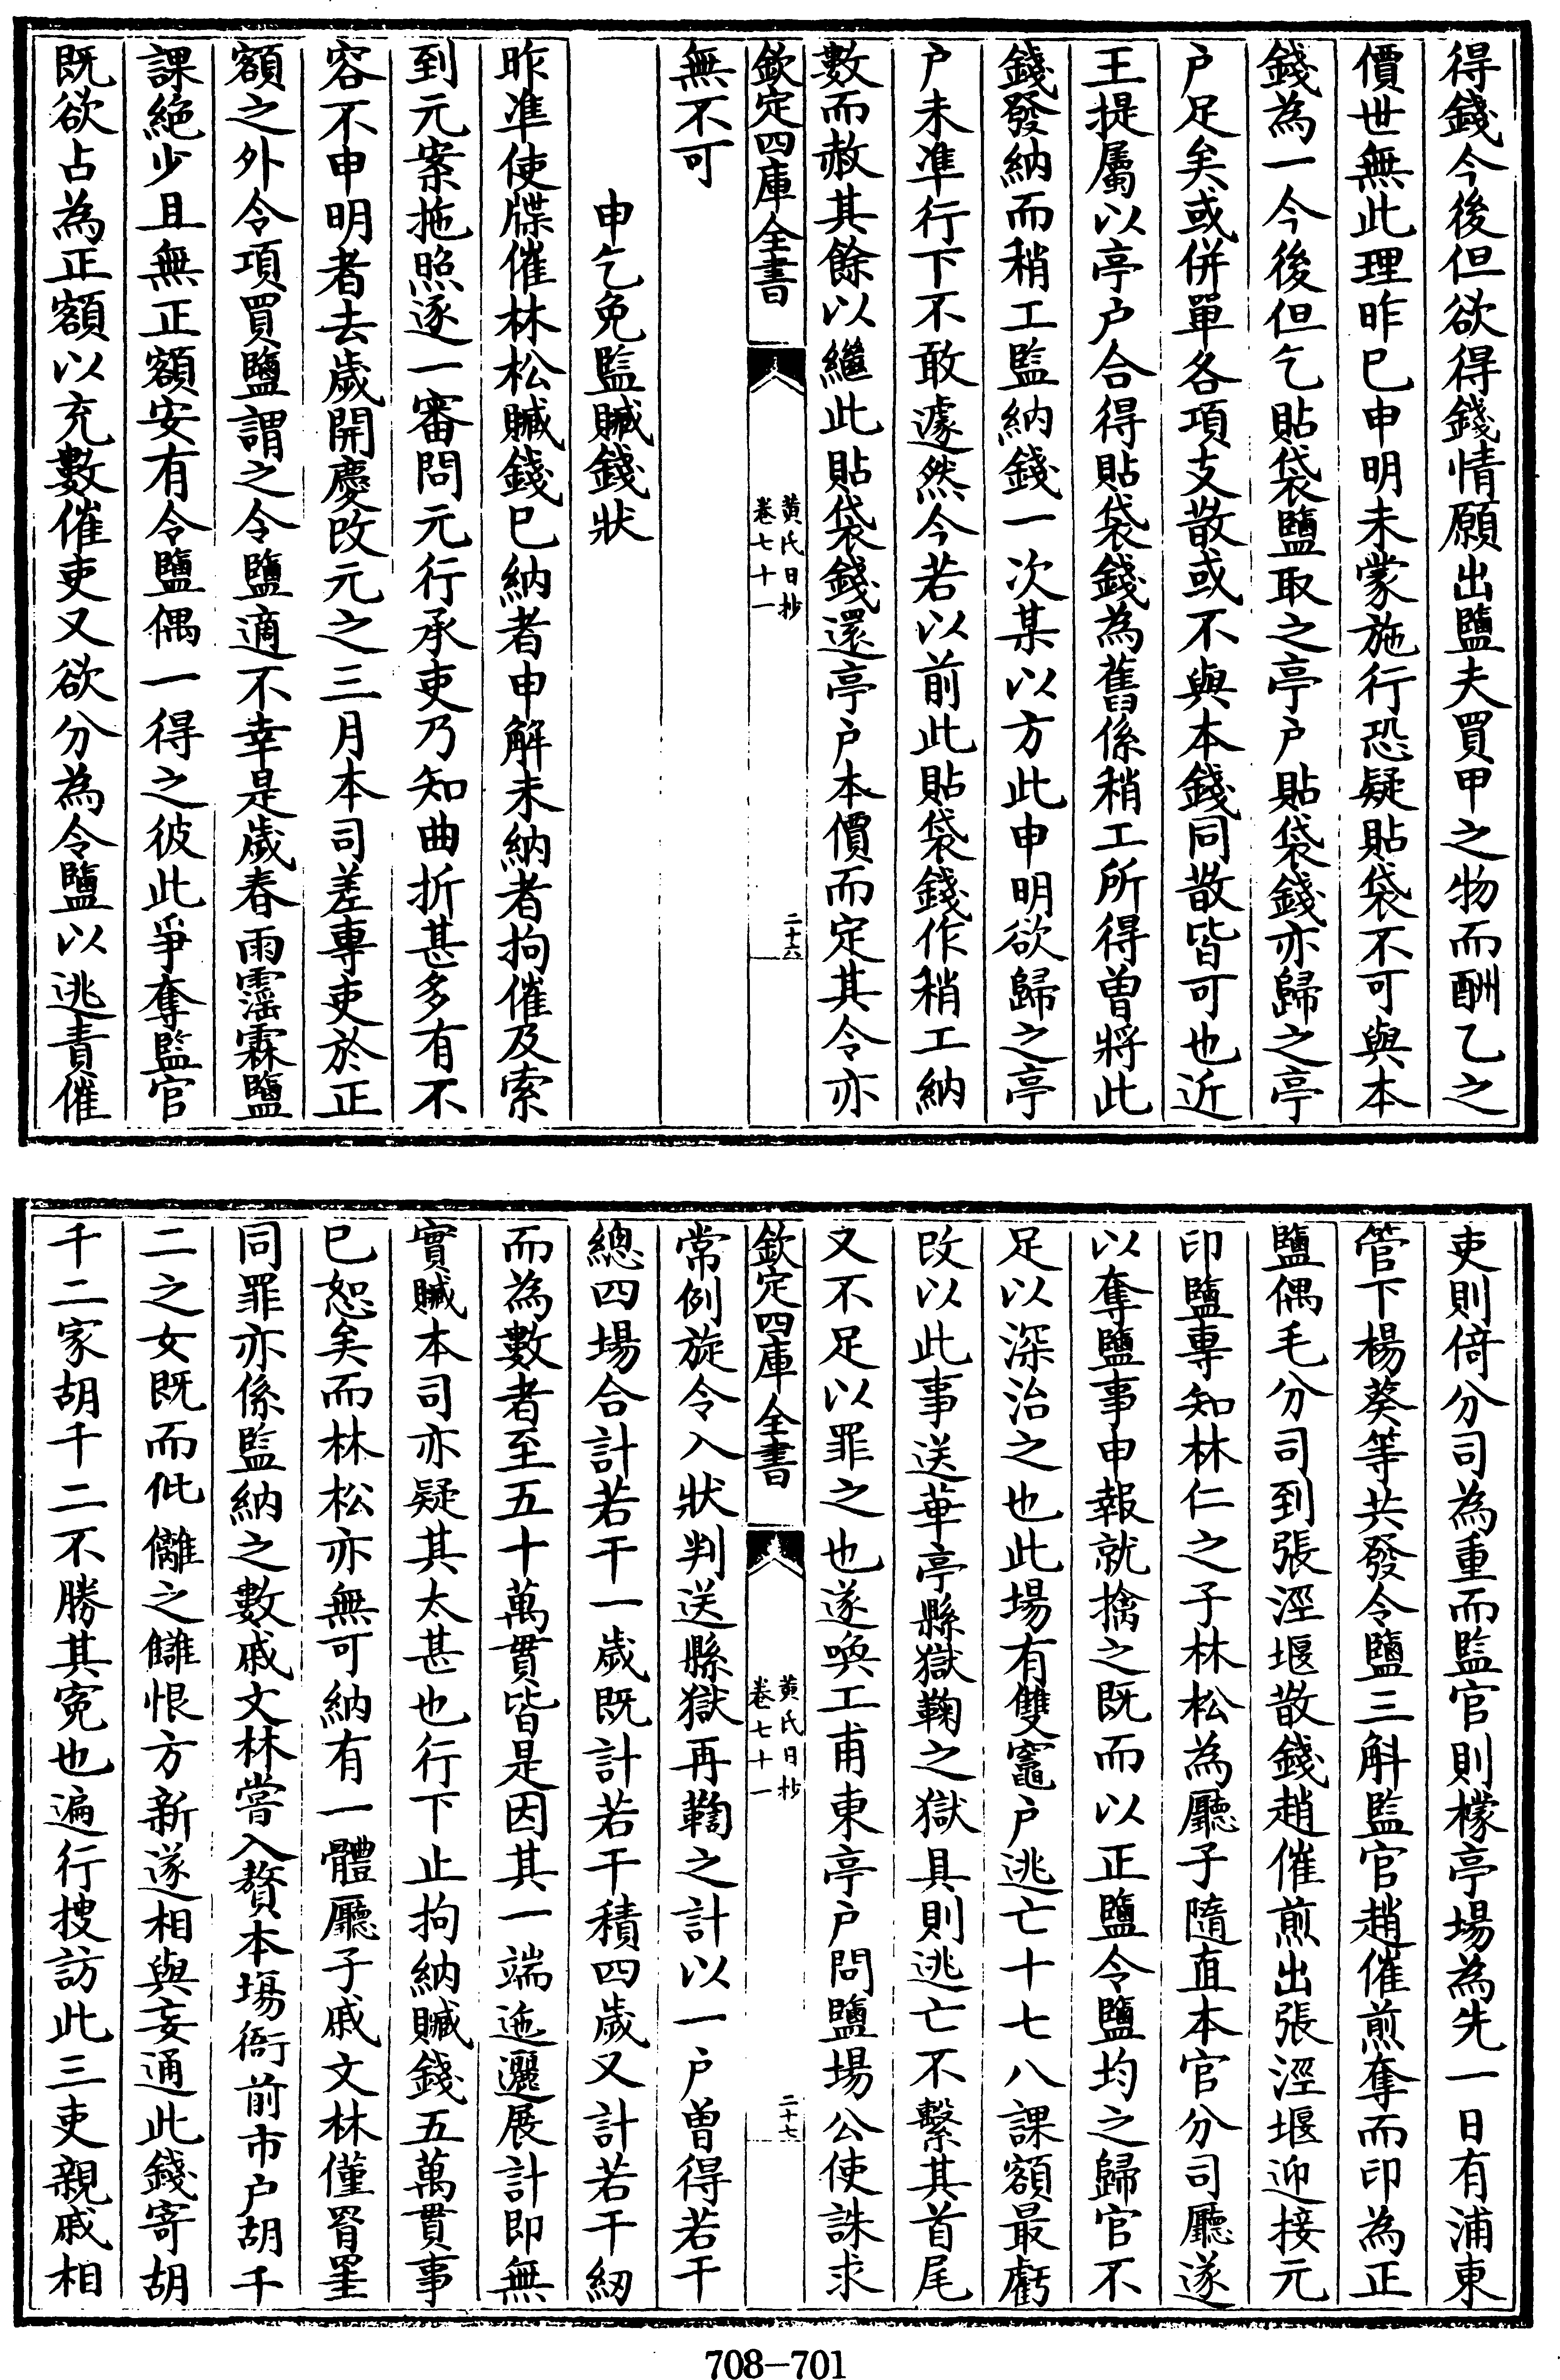 得錢今後但欲得錢情願出鹽夫買甲之物而酬乙之
價世無此理昨已申明未蒙施行恐疑貼袋不可與本
錢為一今後但乞貼袋鹽取之亭户貼袋錢亦歸之亭
户足矣或併單各項支散或不與本錢同散皆可也近
王提屬以亭户合得貼袋錢為舊係稍工所得曽將此
錢發納而稍工監納錢一次某以方此申明欲歸之亭
户未準行下不敢遽然今若以前此貼袋錢作稍工納
數而赦其餘以繼此貼袋錢還亭户本價而定其令亦
欽定四庫全書
黄氏日抄
卷七十一
二十六
無不可
申乞免監贓錢狀
昨準使牒催林松贓錢已納者申解未納者拘催及索
到元案拖照逐一審問元行承吏乃知曲折甚多有不
容不申明者去歲開慶改元之三月本司差專吏於正
額之外令項買鹽謂之令鹽適不幸是歲春雨霪霖鹽
課絶少且無正額安有令鹽偶一得之彼此爭奪監官
既欲占為正額以充數催吏又欲分為令鹽以逃責催
吏則倚分司為重而監官則檬亭場為先一日有浦東
管下楊葵等共發令鹽三斛監官趙催煎奪而印為正
鹽偶毛分司到張涇堰散錢趙催煎出張涇堰迎接元
印鹽專知林仁之子林松為廳子隨直本官分司廳遂
以奪鹽事申報就擒之既而以正鹽令鹽均之歸官不
足以深治之也此場有雙竈户逃亡十七八課額最虧
改以此事送華亭縣獄鞠之獄具則逃亡不繫其首尾
又不足以罪之也遂喚工甫東亭户問鹽場公使誅求
欽定四庫全書
黄氏日抄
卷七十一
二十七
常例旋令入狀判送縣獄再鞫之計以一户曽得若干
總四場合計若干一歲既計若干積四歲又計若干紐
而為數者至五十萬貫皆是因其一端迤邐展計即無
實贓本司亦疑其太甚也行下止拘納贓錢五萬貫事
已恕矣而林松亦無可納有一體廳子戚文林僅罥罣
同罪亦係監納之數戚文林嘗入贅本場衙前市户胡千
二之女既而仳儷之讎恨方新遂相與妄通此錢寄胡
千二家胡千二不勝其寃也遍行搜訪此三吏親戚相
708-701